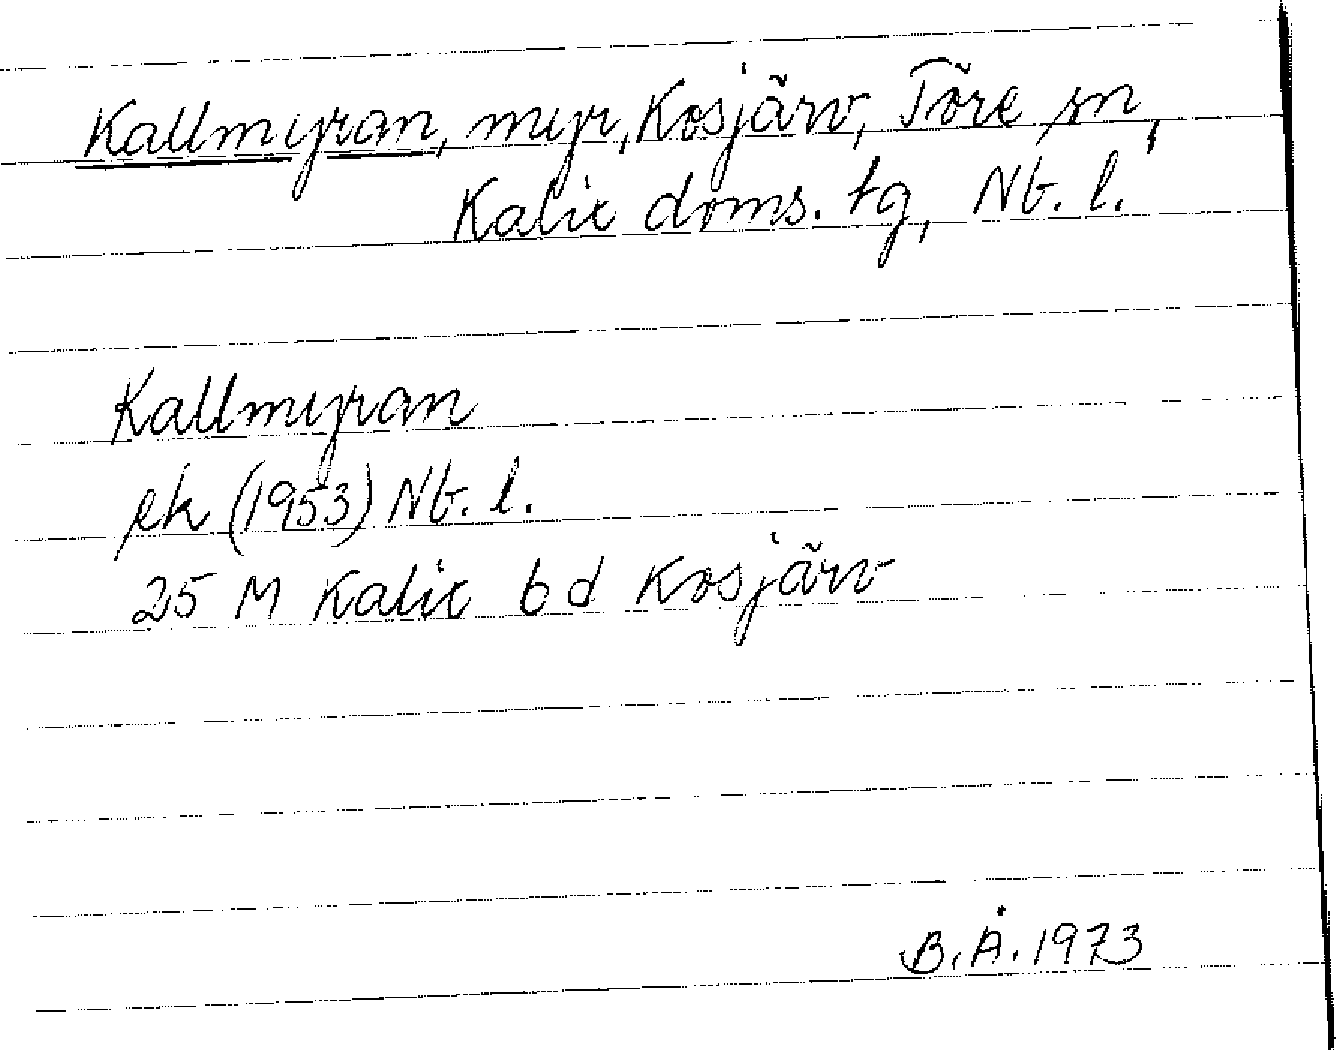 Kallmyran, myr, Kosjärv, Töre sn,
Kalix doms. tg, Nb. l.
Kallmyran
ek (1953) Nb. l.
25 M Kalix bd Kosjärv
B.Å. 1973